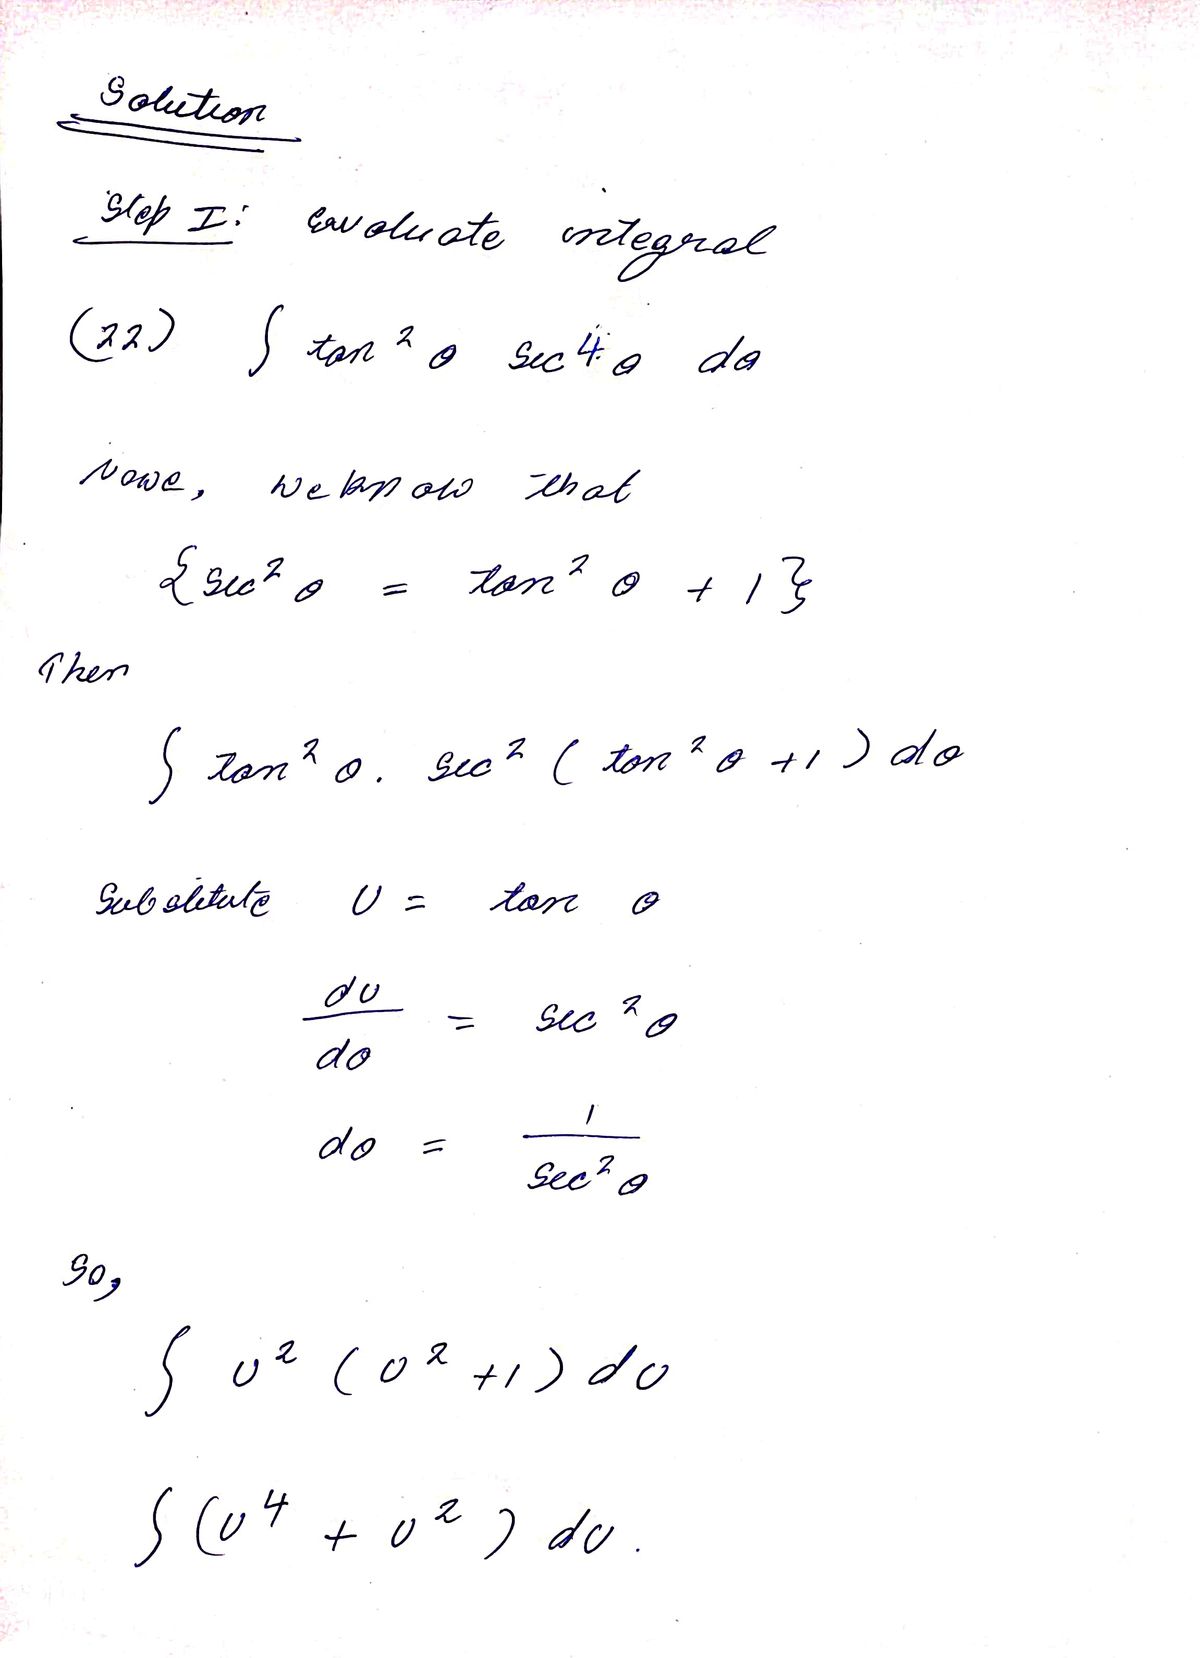 Solution
Step I: Evaluate integral
(22) ∫ tan² θ sec⁴ θ dθ
Nowe, we know that
{sec² θ = tan² θ + 1}
Then
∫ tan² θ. sec² ( tan² θ +1 ) dθ
Substitute U = tan θ
du/dθ = sec² θ
dθ = 1/sec² θ
So,
∫ u² ( u² +1 ) du
∫ (u⁴ + u² ) du.